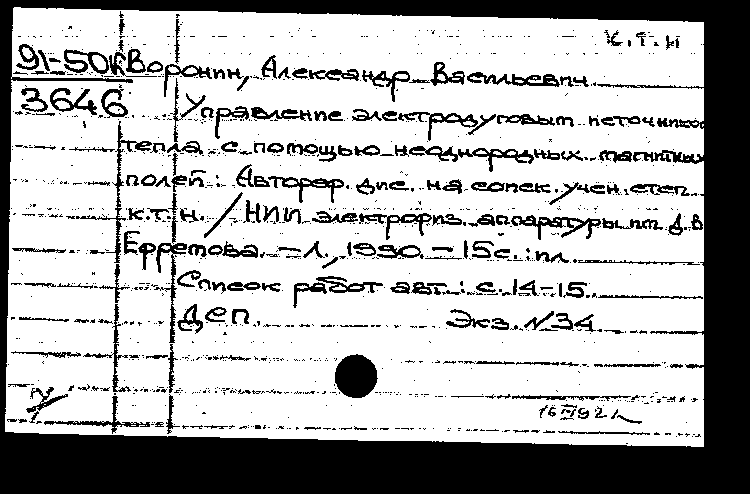 К.Т.Н
91-50к Воронин, Александр Васильевич
3646 Управление электродуговым источником
тепла с помощью неоднородных магнитных
полей : Автореф. дис. на соиск. учен. степ.
к.т.н. / НИИ электрофиз. аппаратуры им. Д.В.
Ефремова. – Л., 1990. – 15с. : ил.
Список работ авт. : с. 14-15.
Деп. Экз. N34
16 92